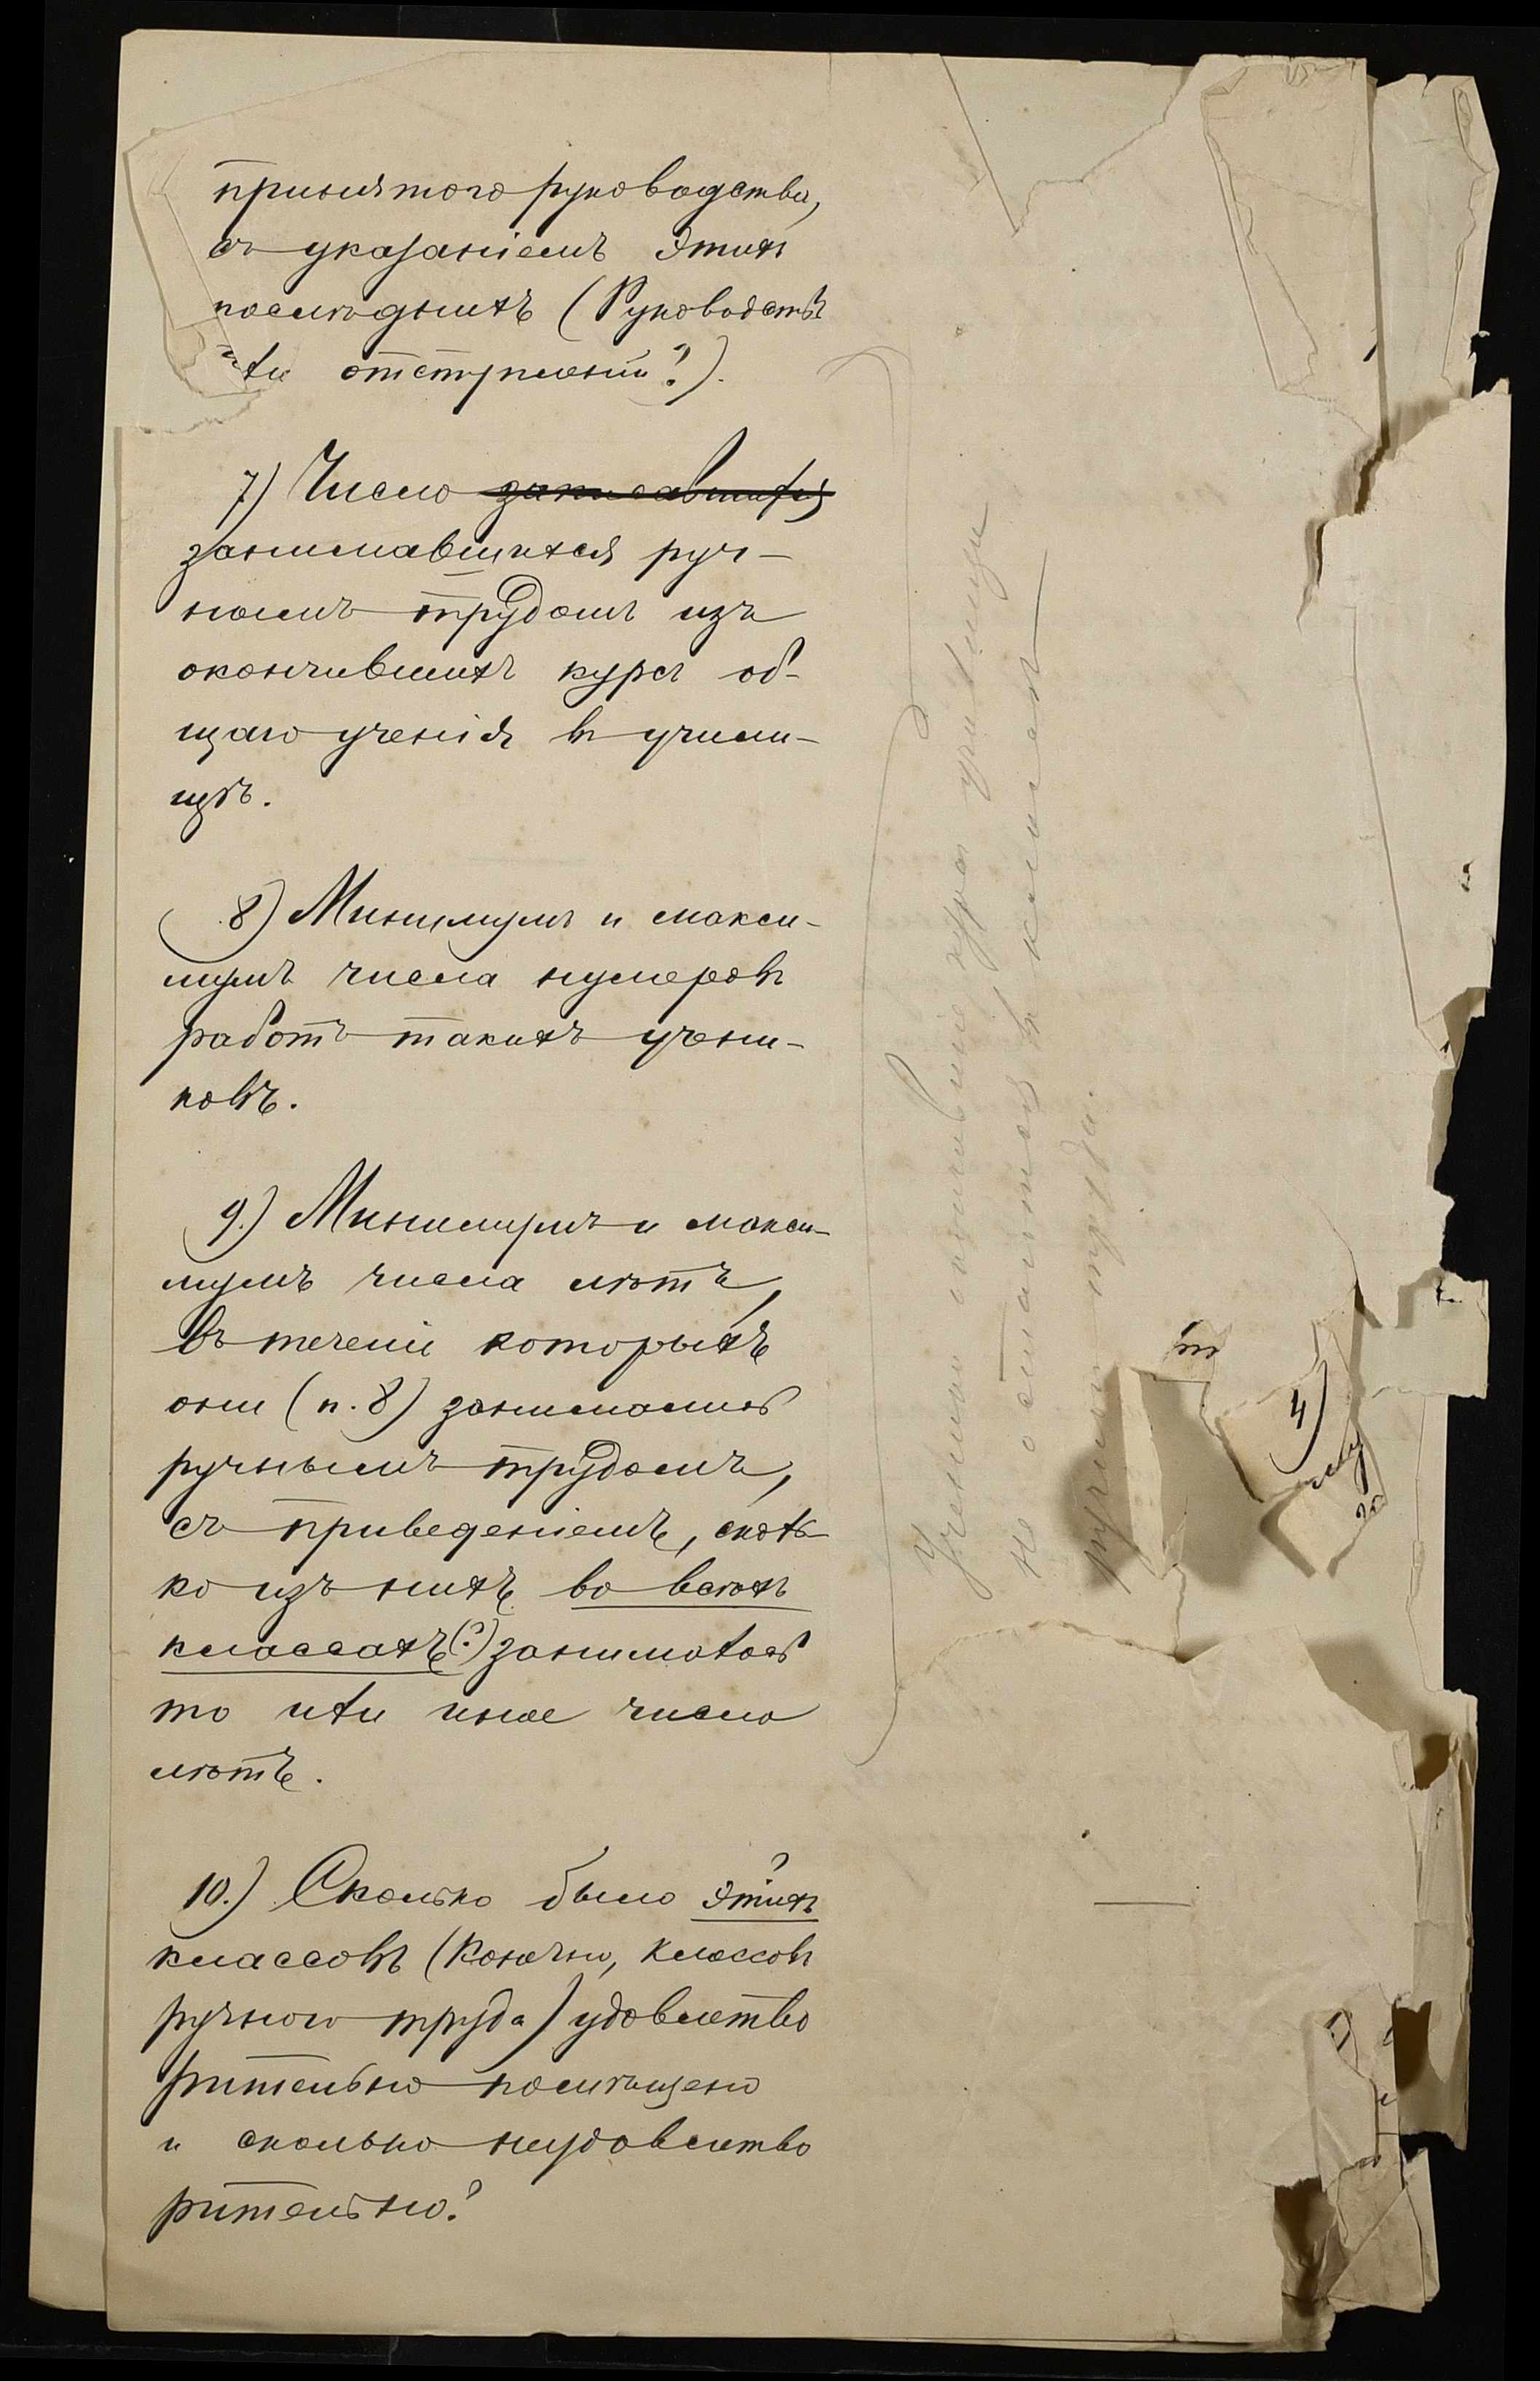 принятого руководства,
съ указаніемъ этихъ
послѣднихъ (Руководствъ
или отступленій?).
7) Число записавшихся
занимавшихся руч-
нымъ трудомъ изъ
окончившихъ курсъ об-
щаго ученія въ учили-
щѣ.
8) Минимумъ и макси-
мумъ числа нумеровъ
работъ такихъ учени-
ковъ.
9.) Минимумъ и макси-
мумъ числа лѣтъ,
въ теченіи которыхъ
они (п. 8) занимались
ручнымъ трудомъ,
съ приведеніемъ, сколь-
ко изъ нихъ во всѣхъ
классахъ(?) занималось
то или иное число
лѣтъ.
10.) Сколько было этихъ?
классовъ (Конечно, классовъ
ручного труда) удовлетво
рительно посѣщено
и сколько неудовлетво
рительно?
Ученики окончившіе курсъ училища
не остаются въ классахъ
ручного труда.
4)